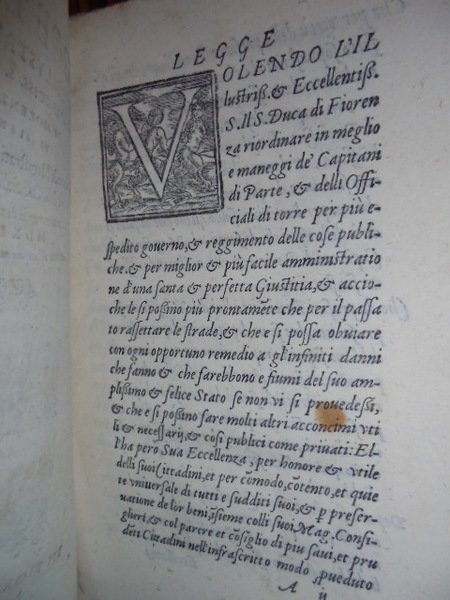 LEGGE
VOLENDO L'IL
lustriss. & Eccellentiss.
S. Il S. Duca di Fioren
za riordinare in meglio
e maneggi de' Capitani
di Parte, & delli Offi-
ciali di torre per più e-
spedito governo, & reggimento delle cose publi-
che. & per miglior & più facile amministratio
ne d'una santa & perfetta Giustitia, & accio-
che le si possino più prontamẽte che per il passa
to rassettare le strade, & che e si possa obuiare
con ogni opportuno remedio a gl'infiniti danni
che fanno & che farebbono e fiumi del suo am-
plissimo & felice Stato se non vi si prouedessi,
& che e si possino fare molti altri acconcimi vti
li & necessarij, & così publici come priuati: El-
l'ha però Sua Eccellenza, per honore & vtile
delli suoi Cittadini, et per cõmodo, cõtento, et quie
te vniuersale di tutti e sudditi suoi, & p preser-
uatione de lor beni, ĩsieme colli suoi Mag. Consi-
glieri, & col parere et cõsiglio di piu saui, et pru
dẽti Cittadini nell'infrascritto modo p̃ueduto
A ij